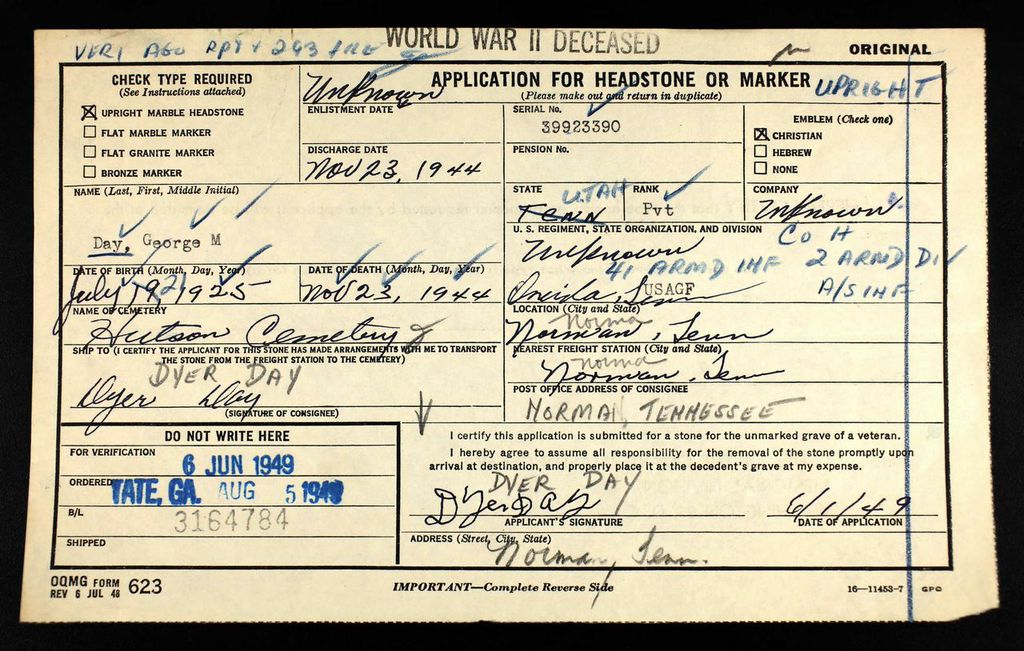 WORLD WAR II DECEASED
ORIGINAL
CHECK TYPE REQUIRED
(See Instructions attached)
☒ UPRIGHT MARBLE HEADSTONE
☐ FLAT MARBLE MARKER
☐ FLAT GRANITE MARKER
☐ BRONZE MARKER
Unknown
ENLISTMENT DATE
DISCHARGE DATE
Nov 23, 1944
APPLICATION FOR HEADSTONE OR MARKER UPRIGHT
(Please make out and return in duplicate)
SERIAL No.
39923390
PENSION No.
EMBLEM (Check one)
☒ CHRISTIAN
☐ HEBREW
☐ NONE
NAME (Last, First, Middle Initial)
Day, George M
STATE
UTAH
Tenn
RANK
Pvt
COMPANY
Unknown
Co H
U. S. REGIMENT, STATE ORGANIZATION, AND DIVISION
Unknown
41 ARMD INF 2 ARMD DIV
USAGF
A/S INF
DATE OF BIRTH (Month, Day, Year)
July 19, 1925
21
DATE OF DEATH (Month, Day, Year)
Nov 23, 1944
Oneida, Tenn
LOCATION (City and State)
NAME OF CEMETERY
Hutson Cemetery
Norma
Norman, Tenn
NEAREST FREIGHT STATION (City and State)
SHIP TO (I CERTIFY THE APPLICANT FOR THIS STONE HAS MADE ARRANGEMENTS WITH ME TO TRANSPORT
THE STONE FROM THE FREIGHT STATION TO THE CEMETERY)
DYER DAY
Dyer Day
(SIGNATURE OF CONSIGNEE)
Norma
Norman, Tenn
POST OFFICE ADDRESS OF CONSIGNEE
NORMA, TENNESSEE
DO NOT WRITE HERE
FOR VERIFICATION
6 JUN 1949
ORDERED
TATE, GA. AUG 5 1949
B/L
3164784
SHIPPED
I certify this application is submitted for a stone for the unmarked grave of a veteran.
I hereby agree to assume all responsibility for the removal of the stone promptly upon
arrival at destination, and properly place it at the decedent's grave at my expense.
DYER DAY
Dyer DAy
APPLICANT'S SIGNATURE
6/1/49
DATE OF APPLICATION
ADDRESS (Street, City, State)
Norman, Tenn.
OQMG FORM 623
REV 6 JUL 48
IMPORTANT—Complete Reverse Side
16—11453-7 GPO